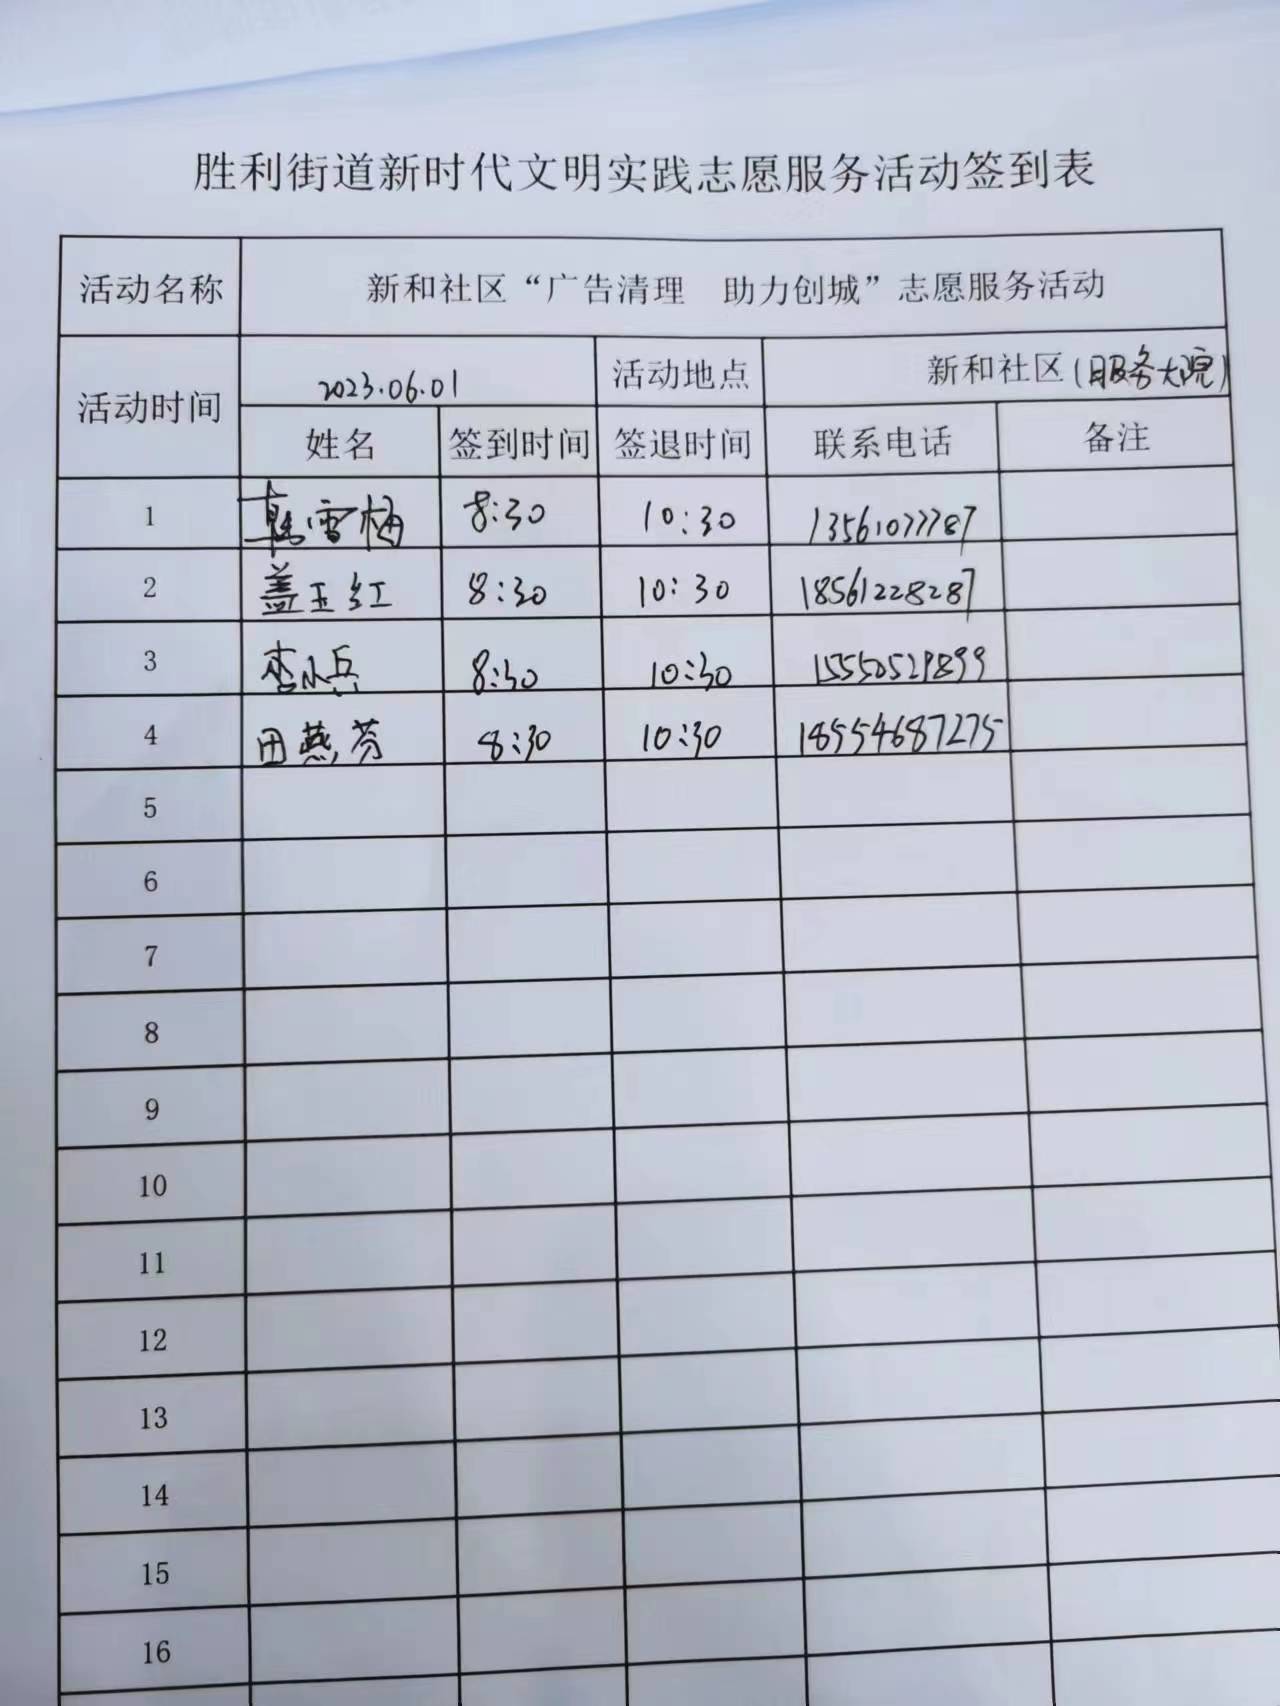 胜利街道新时代文明实践志愿服务活动签到表
活动名称 新和社区“广告清理 助力创城”志愿服务活动
活动时间 2023.06.01 活动地点 新和社区(服务大院)
姓名 签到时间 签退时间 联系电话 备注
1 韩雪梅 8:30 10:30 13561077787
2 盖玉红 8:30 10:30 18561228287
3 李小兵 8:30 10:30 15550529899
4 田燕芬 8:30 10:30 18554687275
5
6
7
8
9
10
11
12
13
14
15
16